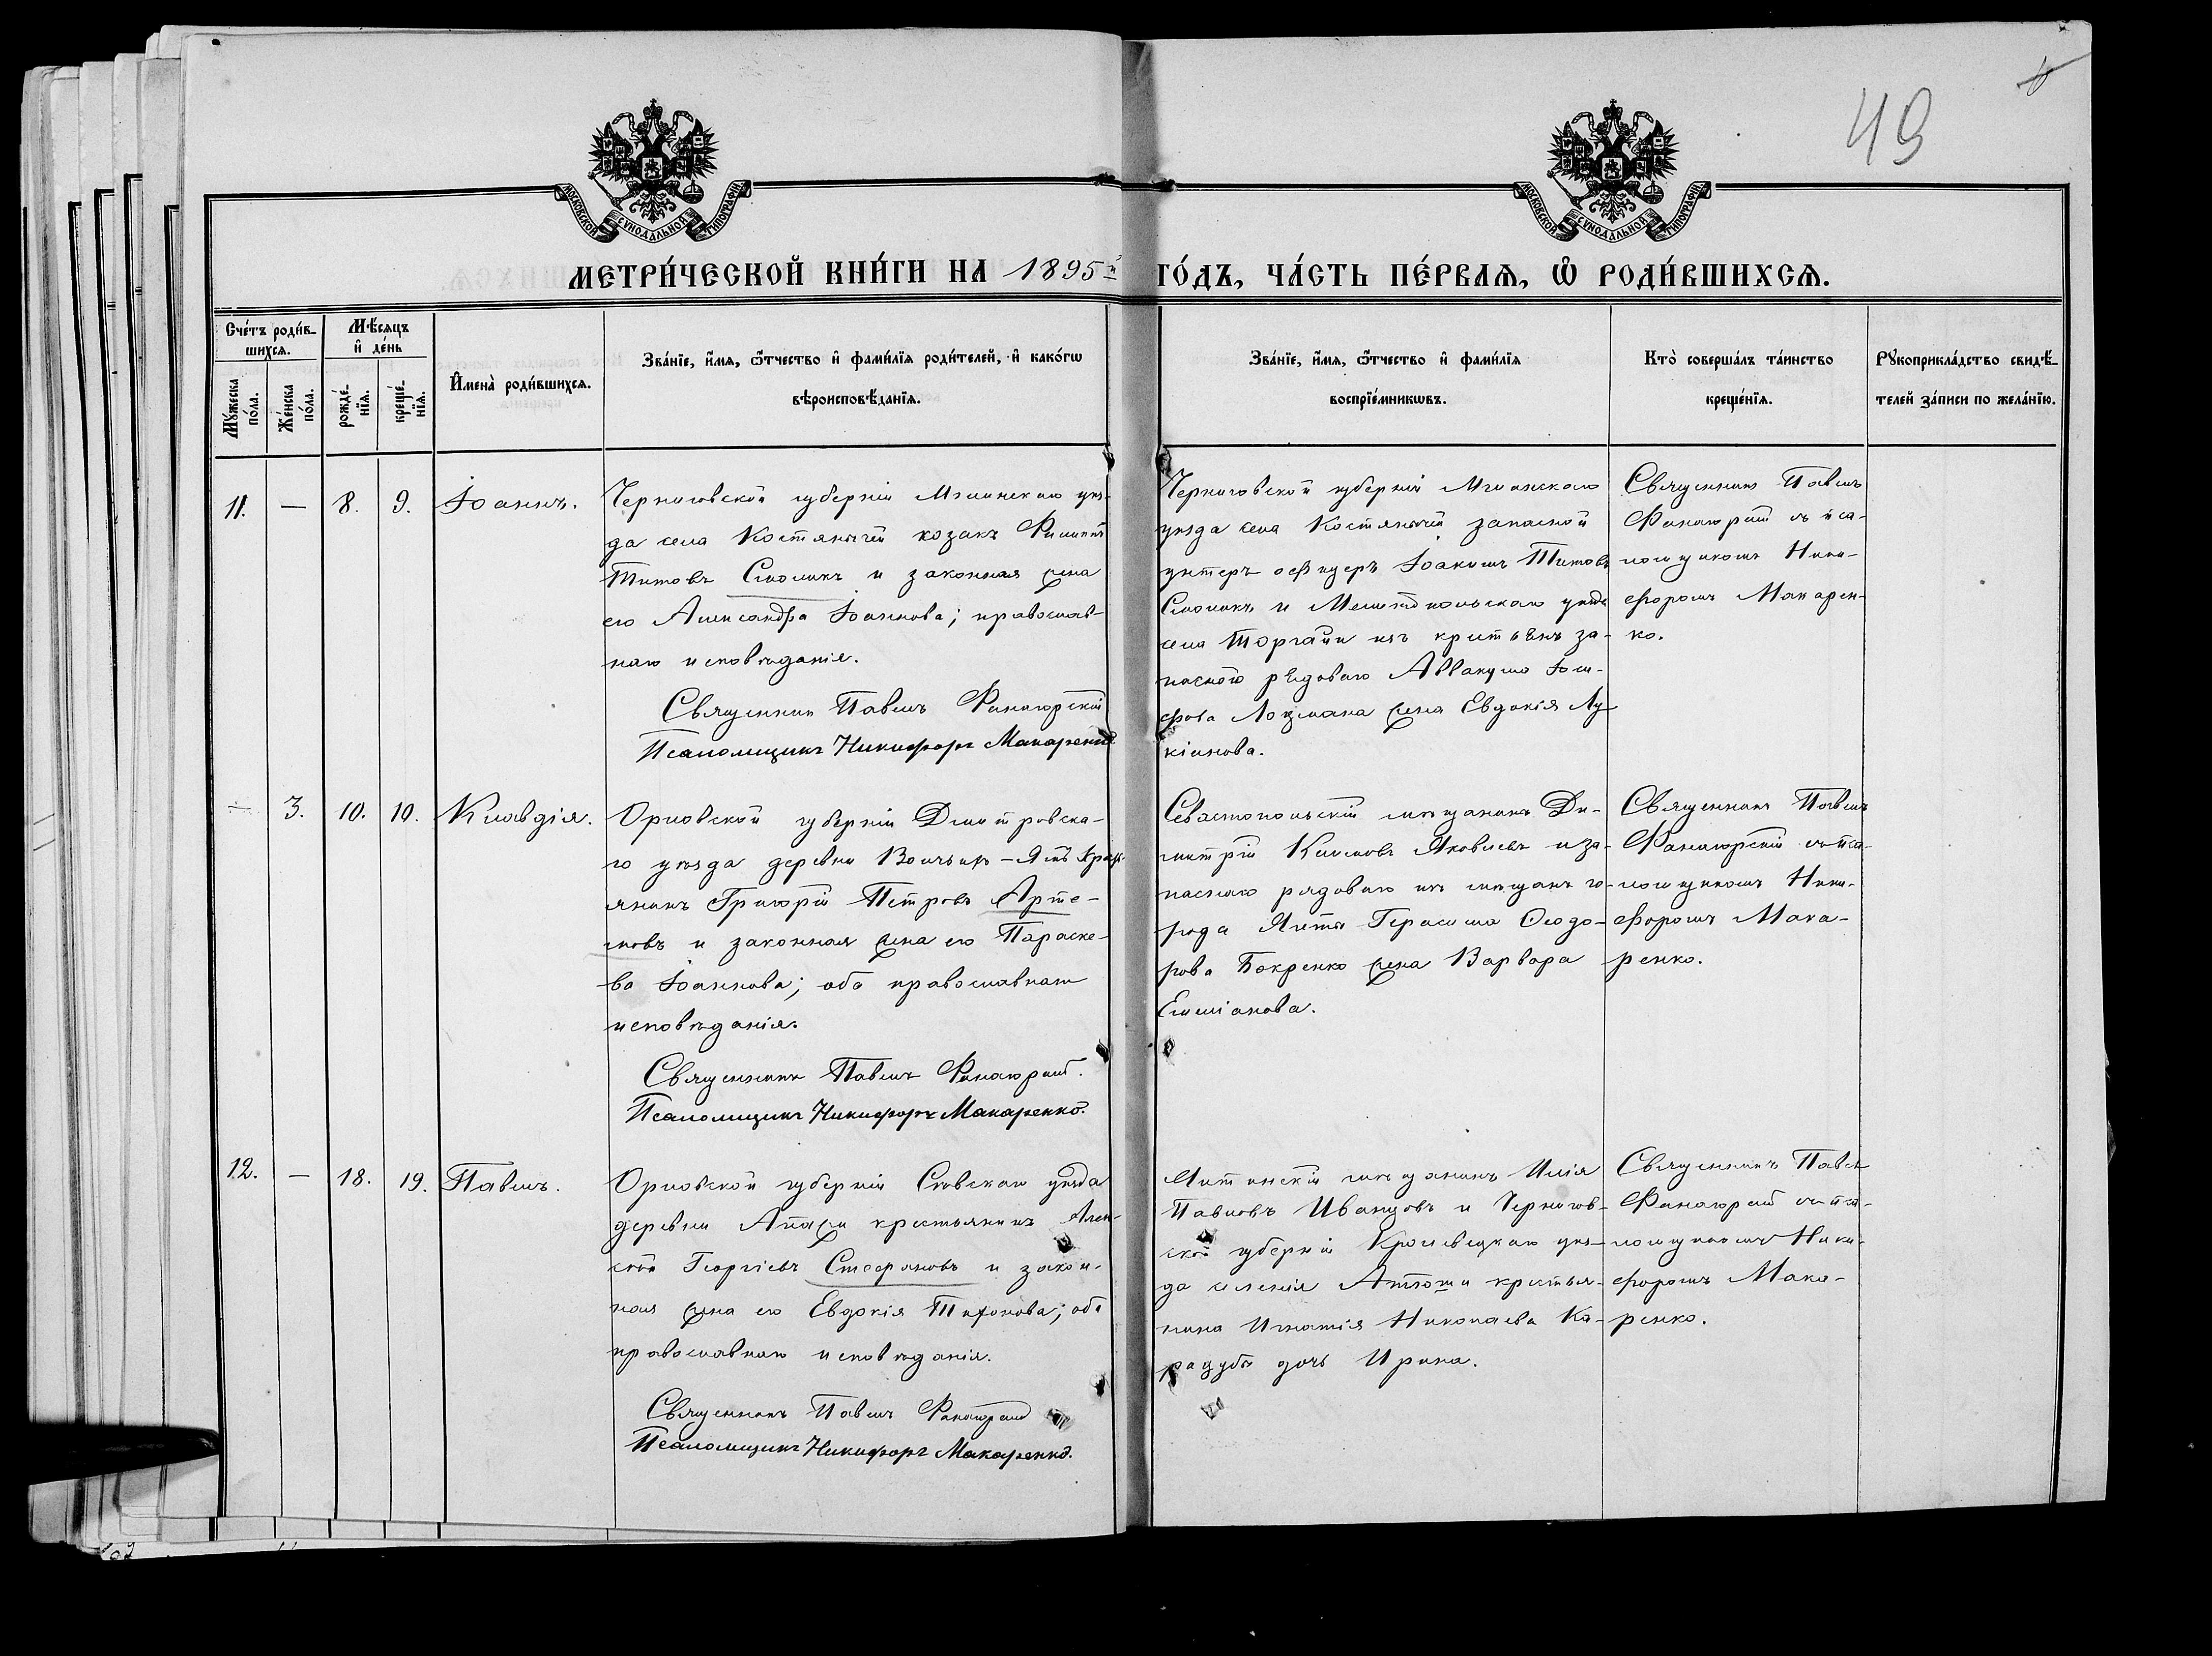 49
МОСКОВСКОЙ СѴНОДАЛЬНОЙ ТИПОГРАФІИ
МОСКОВСКОЙ СѴНОДАЛЬНОЙ ТИПОГРАФІИ
МЕТРИ́ЧЕСКОЙ КНИ́ГИ НА 1895й ГО́ДЪ, ЧА́СТЬ ПЕ́РВАѦ, Ѡ҆ РОДИ́ВШИХСѦ.
Сче́тъ роди́в-
шихсѧ.
Мѣ́сѧцъ
и҆ де́нь
Мꙋ́жеска
по́ла.
Же́нска
по́ла.
рожде́-
нїѧ.
креще́-
нїѧ.
И҆мена̀ роди́вшихсѧ.
Зва́нїе, и҆́мѧ, ѻ҆́тчество и҆ фами́лїѧ роди́телей, и҆ како́гѡ
вѣроисповѣ́данїѧ.
Зва́нїе, и҆́мѧ, ѻ҆́тчество и҆ фами́лїѧ
воспрїе́мникѡвъ.
Кто̀ соверша́лъ та́инство
креще́нїѧ.
Рꙋкоприкла́дство свидѣ́-
телей за́писи по жела́нїю.
11. — 8. 9. Іоаннъ.
Черниговской губерніи Мглинскаго уѣз-
да села Костяничей козакъ Филиппъ
Титовъ Смоликъ и законная жена
его Александра Іоаннова; православ-
наго исповѣданія.
Священникъ Павелъ Фанагорскій
Псаломщикъ Никифоръ Макаренко.
Черниговской губерніи Мглинскаго
уѣзда села Костяничей запасной
унтеръ офицеръ Іоакимъ Титовъ
Смоликъ и Мелитопольскаго уѣзда
села Торгаи изъ крестьянъ за-
паснаго рядоваго Аввакума Іоси-
фова Лоцмана жена Евдокія Лу-
кіанова.
Священникъ Павелъ
Фанагорскій съ пса-
ломщикомъ Ники-
форомъ Макарен-
ко.
— 3. 10. 10. Клавдія.
Орловской губерніи Дмитровска-
го уѣзда деревни
янинъ Григорій Петровъ Арте-
мовъ и законная жена его Параске-
ва Іоаннова; оба православнаго
исповѣданія.
Священникъ Павелъ Фанагорскій.
Псаломщикъ Никифоръ Макаренко.
Севастопольскій мѣщанинъ Ди-
митрій Климовъ Яковлевъ и за-
паснаго рядоваго изъ мѣщанъ го-
рода Ялты Герасима Ѳеодо-
рова Бокренко жена Варвара
Емиліанова.
Священникъ Павелъ
Фанагорскій съ пса-
ломщикомъ Ники-
форомъ Мака-
ренко.
12. — 18. 19. Павелъ.
Орловской губерніи Сѣвскаго уѣзда
деревни крестьянинъ Алек-
сѣй Георгіевъ Стефановъ и закон-
ная жена его Евдокія Тихонова; оба
православнаго исповѣданія.
Священникъ Павелъ Фанагорскій
Псаломщикъ Никифоръ Макаренко.
Ялтинскій мѣщанинъ Илія
Павловъ Иванцовъ и Чернигов-
ской губерніи Кролевецкаго уѣз-
да селенія Атюши крестья-
нина Игнатія Николаева Ка-
рацубы дочь Ирина.
Священникъ Павелъ
Фанагорскій съ пса-
ломщикомъ Ники-
форомъ Мака-
ренко.